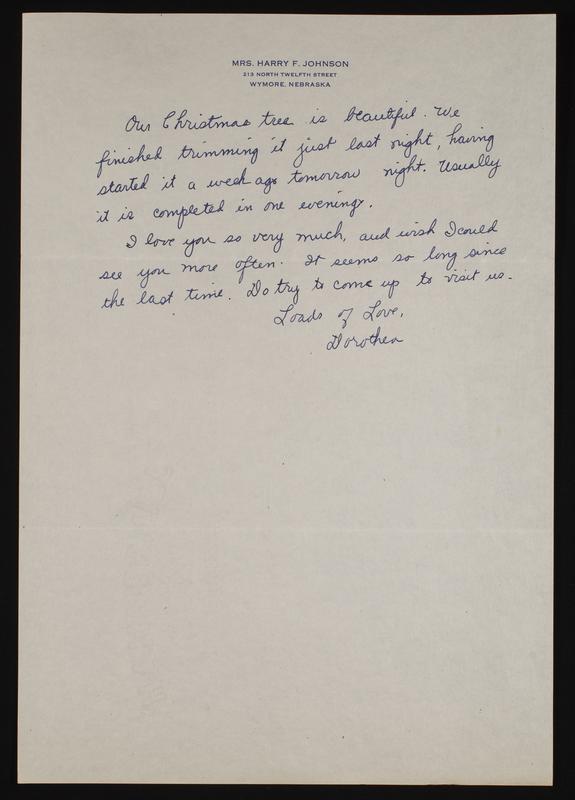 MRS. HARRY F. JOHNSON
213 NORTH TWELFTH STREET
WYMORE, NEBRASKA
Our Christmas tree is beautiful. We
finished trimming it just last night, having
started it a week ago tomorrow night. Usually
it is completed in one evening.
I love you so very much, and wish I could
see you more often. It seems so long since
the last time. Do try to come up to visit us.
Loads of Love,
Dorothea